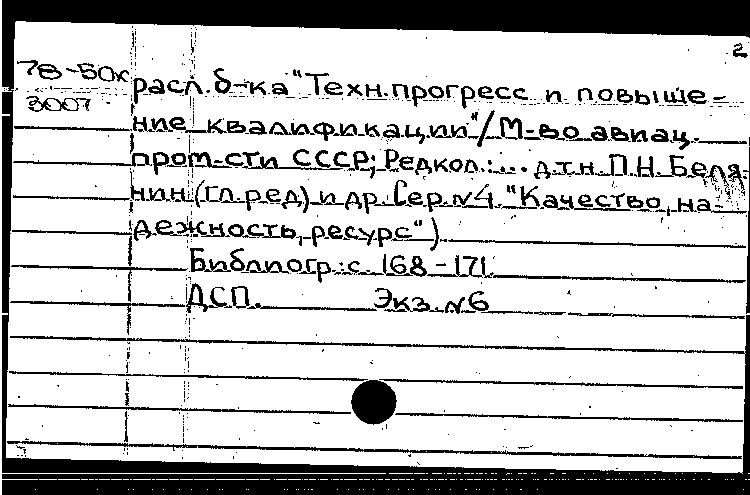 2
78-50к
3007
расл. б-ка "Техн. прогресс и повыше-
ние квалификации"/М-во авиац.
пром-сти СССР; Редкол.:... д.т.н. П.Н. Беля-
нин (гл. ред) и др. Сер. №4. "Качество, на-
дежность, ресурс").
Библиогр.: с. 168-171.
ДСП. Экз. №6